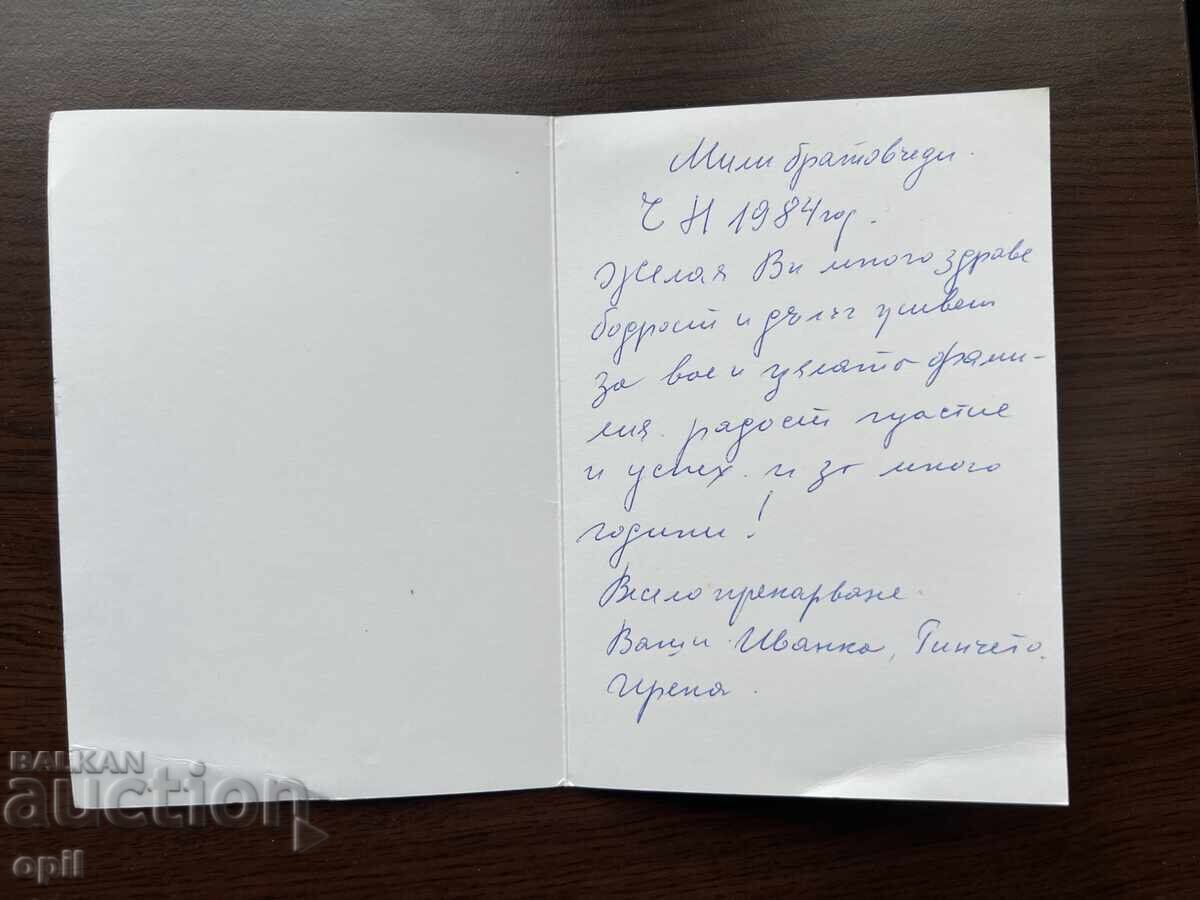 Мили братовчеди.
Ч Н 1984 год.
Желая Ви много здраве
бодрост и дълъг живот
за вас и цялата фами-
лия. радост щастие
и успех. и за много
години!
Весело прекарване.
Ваши Иванка, Гинчето,
Ирена.
BALKAN
auction
opil